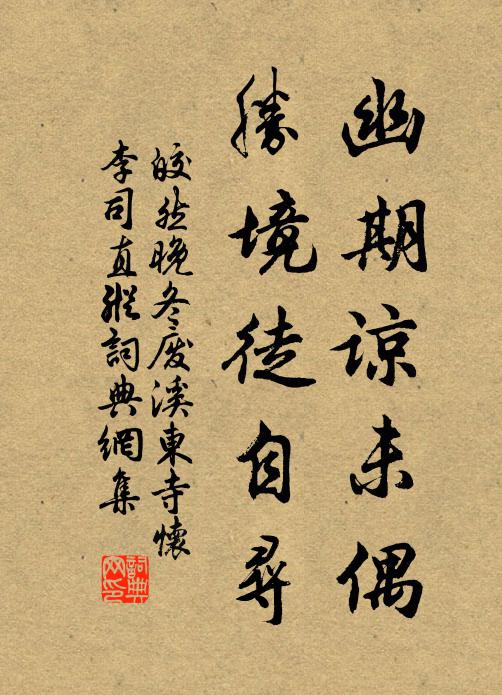 幽期諒未偶
勝境徒自尋
皎然晚冬废溪東寺懷
李司直縱詞典網集
詞典
网印